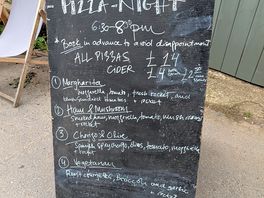 - PIZZA-NIGHT
6:30-8:00pm
* Book in advance to avoid disappointment
ALL PIZZAS £14
CIDER £4
① Margharita
mozzerella, tomato, fresh rocket, and
+ rocket
② Ham & Mushroom
Smoked ham, mozzerella, tomato, mushrooms
+ rocket
③ Chorizo & Olive
Spanish chorizo, olives, tomato, mozzerella
+ rocket
④ Vegetarian
Roast courgette, Broccoli and garlic
+ rocket